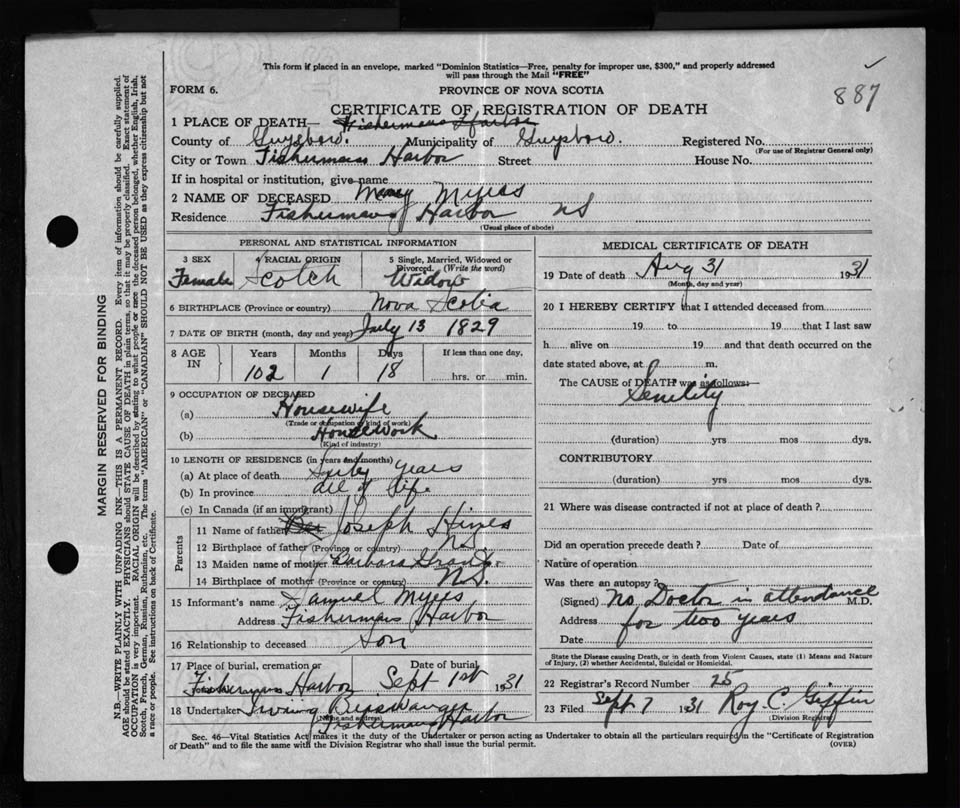 This form if placed in an envelope, marked "Dominion Statistics—Free, penalty for improper use, $300," and properly addressed
will pass through the Mail "FREE"
FORM 6.
PROVINCE OF NOVA SCOTIA
887
CERTIFICATE OF REGISTRATION OF DEATH
1 PLACE OF DEATH— Fishermans Harbor
County of Guysboro. Municipality of Guysboro. Registered No.
(For use of Registrar General only)
City or Town Fishermans Harbor Street House No.
If in hospital or institution, give name
2 NAME OF DECEASED Myers
Residence Fishermans Harbor NS
(Usual place of abode)
PERSONAL AND STATISTICAL INFORMATION
3 SEX
Female
4 RACIAL ORIGIN
Scotch
5 Single, Married, Widowed or Divorced. (Write the word)
Widow
6 BIRTHPLACE (Province or country) Nova Scotia
7 DATE OF BIRTH (month, day and year) July 13 1829
8 AGE IN
Years Months Days If less than one day,
102 1 18 hrs. or min.
9 OCCUPATION OF DECEASED
(a) Housewife
(Trade or occupation or kind of work)
(b) Housework
(Kind of industry)
10 LENGTH OF RESIDENCE (in years and months)
(a) At place of death Sixty years
(b) In province all of life.
(c) In Canada (if an immigrant)
Parents
11 Name of father Joseph Hines
12 Birthplace of father (Province or country) N.S.
13 Maiden name of mother Barbara Grant
14 Birthplace of mother (Province or country) N.S.
15 Informant's name Samuel Myers
Address Fishermans Harbor
16 Relationship to deceased Son
17 Place of burial, cremation or Date of burial
Fishermans Harbor Sept 1st 1931
18 Undertaker Irving
(Name and address) Fishermans Harbor
MEDICAL CERTIFICATE OF DEATH
19 Date of death Aug 31 1931
(Month, day and year)
20 I HEREBY CERTIFY that I attended deceased from
19 to 19 that I last saw
h alive on 19 and that death occurred on the
date stated above, at m.
The CAUSE of DEATH was as follows:
Senility
(duration) yrs mos dys.
CONTRIBUTORY
(duration) yrs mos dys.
21 Where was disease contracted if not at place of death?
Did an operation precede death? Date of
Nature of operation
Was there an autopsy?
(Signed) No Doctor in attendance M.D.
Address for two years
Date
State the Disease causing Death, or in death from Violent Causes, state (1) Means and Nature
of Injury, (2) whether Accidental, Suicidal or Homicidal.
22 Registrar's Record Number 25
23 Filed Sept 7 1931 Roy C. Giffin
(Division Registrar)
Sec. 46—Vital Statistics Act makes it the duty of the Undertaker or person acting as Undertaker to obtain all the particulars required in the "Certificate of Registration
of Death" and to file the same with the Division Registrar who shall issue the burial permit.
(OVER)
MARGIN RESERVED FOR BINDING
N.B.—WRITE PLAINLY WITH UNFADING INK—THIS IS A PERMANENT RECORD. Every item of information should be carefully supplied.
AGE should be stated EXACTLY. PHYSICIANS should STATE CAUSE OF DEATH in plain terms, so that it may be properly classified. Exact statement of
OCCUPATION is very important. RACIAL ORIGIN will be described by stating to what people or race the deceased person belonged, whether English, Irish,
Scotch, French, German, Russian, Ruthenian, etc. The terms "AMERICAN" or "CANADIAN" SHOULD NOT BE USED as they express citizenship but not
a race or people. See instructions on back of Certificate.